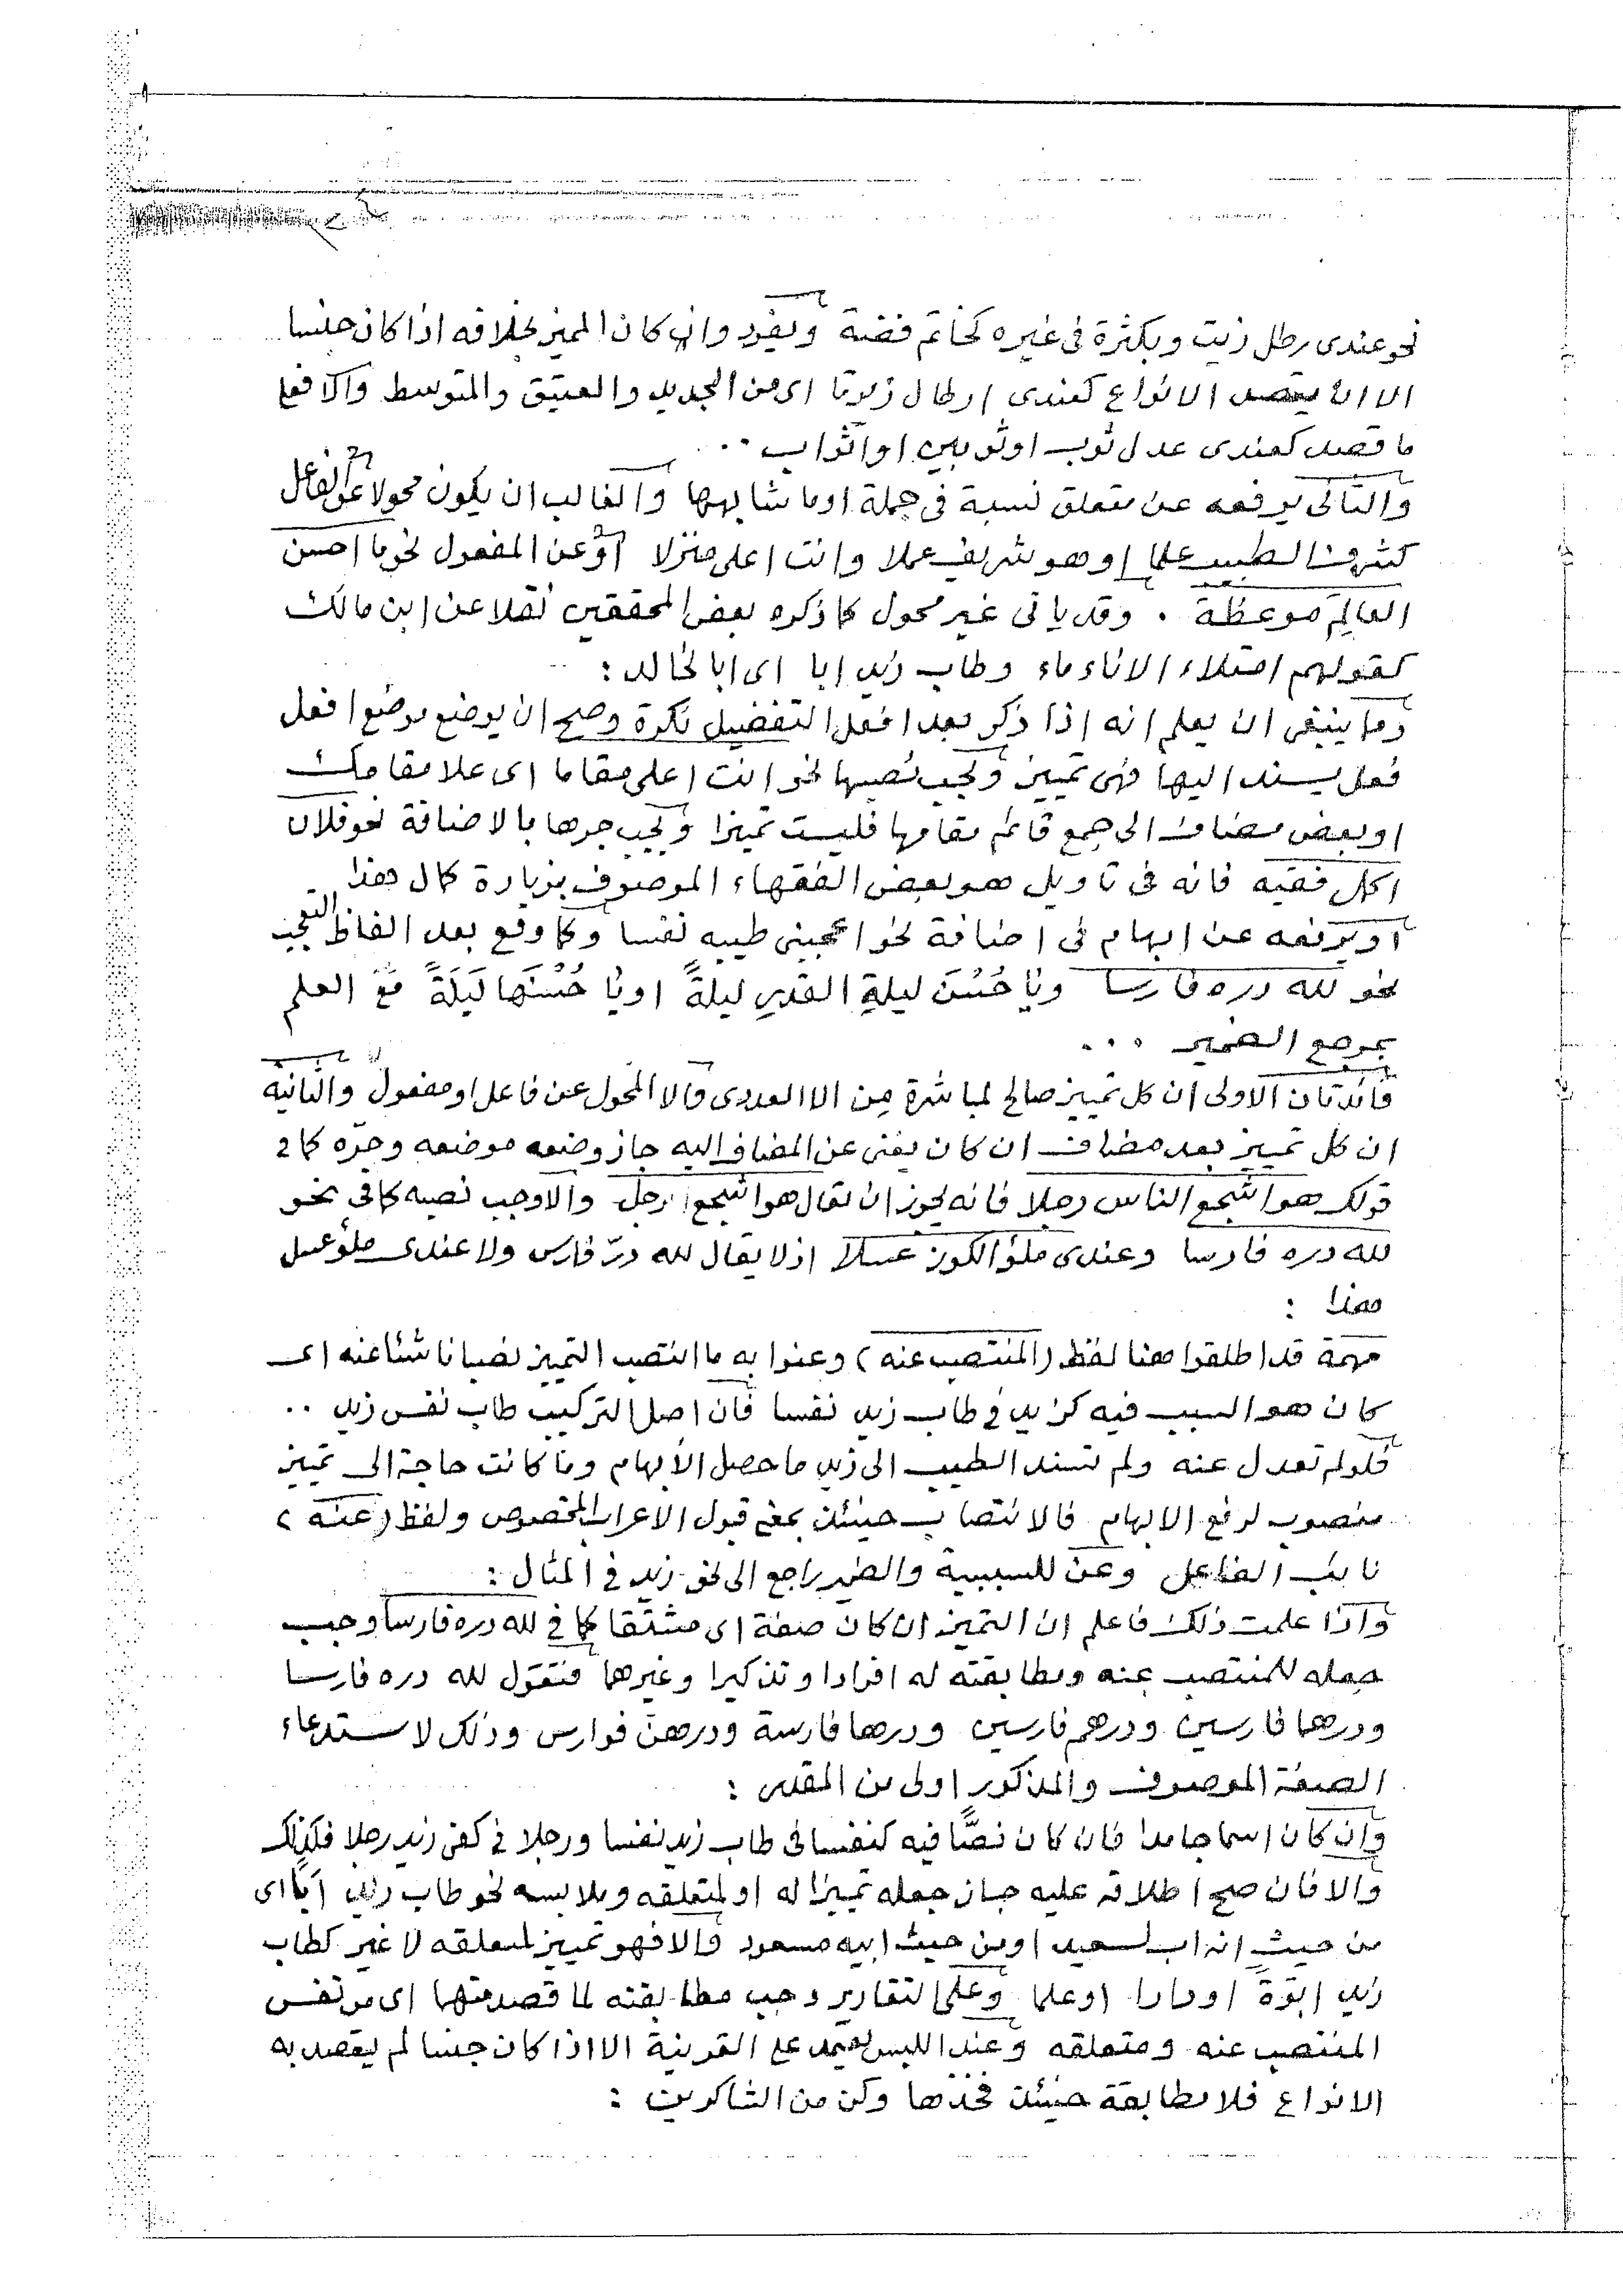 نحو عندى رطل زيت وبكثرة فى غيره كخاتم فضة ويفرد وان كان المميز بخلافه اذا كان جنسا
الا ان يقصد الانواع كعندى ارطال زيوتا اى من الجديد والعتيق والمتوسط والا فعلى
ما قصد كعندى عدل ثوب او ثوبين او اثواب ..
والثانى يرفعه عن متعلق نسبة فى جملة او ما شابهها والغالب ان يكون محولا عن الفاعل
كشرف الطبيب علما او هو شريف عملا وانت اعلى منزلا او عن المفعول نحو ما احسن
العالِمَ موعظة . وقد ياتى غير محول كما ذكره بعض المحققين نقلا عن ابن مالك
كقولهم امتلاء الاناء ماء وطاب زيد ابا اى ابا لخالد :
ومما ينبغى ان يعلم انه اذا ذكر بعد افعل التفضيل نكرة وصح ان يوضع موضع افعل
فعل يسند اليها فهى تمييز ويجب نصبها نحو انت اعلى مقاما اى علا مقامك
او بعض مضاف الى جمع قائم مقامها فليست تميزا ويجب جرها بالاضافة نحو فلان
اكمل فقيه فانه فى تاويل هو بعض الفقهاء الموصوف بزيادة كمال هذا
او يرفعه عن ابهام فى اضافة نحو اعجبنى طيبه نفسا وكما وقع بعد الفاظ التعجب
نحو لله دره فارسا ويا حُسْنَ ليلةِ القدرِ ليلةً او يا حُسْنَها لَيلَةً مَعَ العلم
بمرجع الضمير ...
فائدتان الاولى ان كل تمييز صالح لمباشرة مِن الا العددى والا المحول عن فاعل او مفعول والثانية
ان كل تمييز بعد مضاف ان كان يغنى عن المضاف اليه جاز وضعه موضعه وجرّه كما فى
قولك هو اشجع الناس رجلا فانه يجوز ان يقال هو اشجع رجل والا وجب نصبه كما فى نحو
لله دره فارسا وعندى ملؤ الكوز عسلا اذ لا يقال لله درّ فارس ولا عندى ملؤ عسل
هذا :
مهمة قد اطلقوا هنا لفظ (المنتصب عنه) وعنوا به ما انتصب التمييز نصبا ناشئا عنه اى
كان هو السبب فيه كزيد فى طاب زيد نفسا فان اصل التركيب طاب نفس زيد ..
فلو لم تعدل عنه ولم تسند الطيب الى زيد ما حصل الابهام وما كانت حاجة الى تمييز
منصوب لرفع الابهام فالانتصاب حينئذ بمعنى قبول الاعراب المخصوص ولفظ (عنه)
نائب الفاعل وعن للسببية والضمير راجع الى نحو زيد فى المثال :
واذا علمت ذلك فاعلم ان التمييز ان كان صفة اى مشتقا كما فى لله دره فارسا وجب
جعله للمنتصب عنه ومطابقته له افرادا وتذكيرا وغيرهما فتقول لله دره فارسا
ودرهما فارسين ودرهم فارسين ودرها فارسة ودرهنّ فوارس وذلك لاستدعاء
الصفة الموصوف والمذكور اولى من المقدر :
وان كان اسما جامدا فان كان نصًّا فيه كنفسا فى طاب زيد نفسا ورجلا فى كفى زيد رجلا فكذلك
والا فان صح اطلاقه عليه جاز جعله تمييزا له او لمتعلقه وملابسه نحو طاب زيد أبًا اى
من حيث انه اب لسعيد او من حيث ابيه مسعود والا فهو تمييز لمتعلقه لا غير كطاب
زيد ابوّةً او دارا او علما وعلى التقادير وجب مطابقته لما قصد منهما اى من نفس
المنتصب عنه ومتعلقه وعند اللبس يعتمد على القرينة الا اذا كان جنسا لم يقصد به
الانواع فلا مطابقة حينئذ فخذها وكن من الشاكرين :